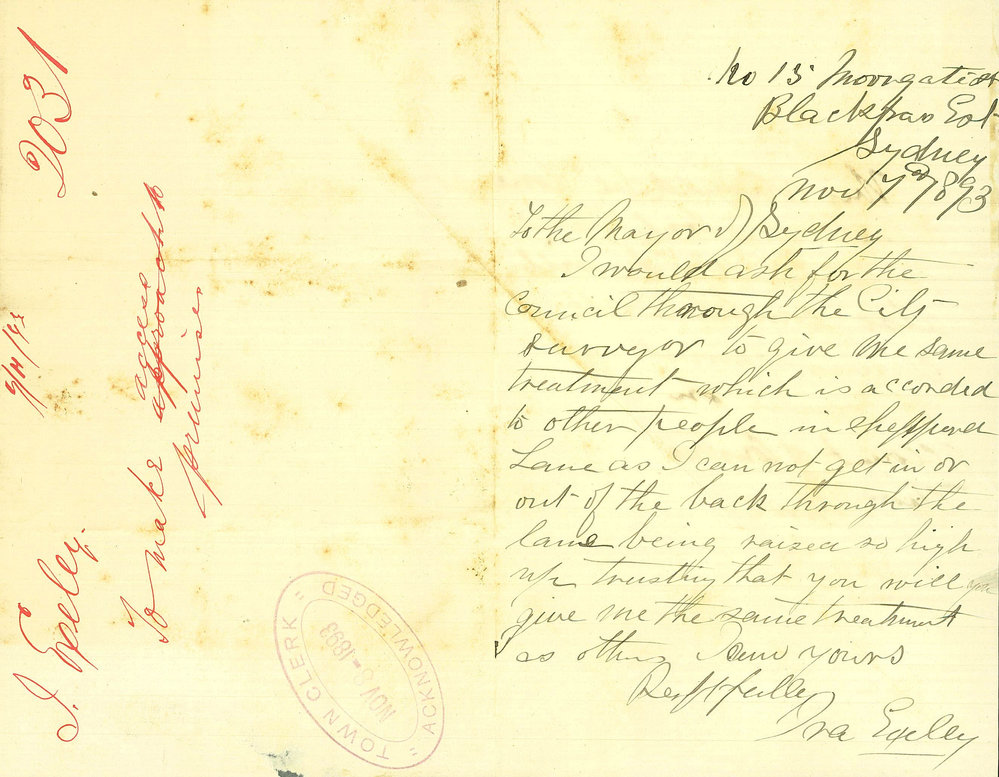 No 15 Moorgate St
Blackfriars Est
Sydney
Nov 7th 1893
To the Mayor of Sydney
I would ask for the
Council through the City
Surveyor to give me same
treatment which is accorded
to other people in Shepperd
Lane as I can not get in or
out of the back through the
lane being raised so high
up trusting that you will
give me the same treatment
as others I am yours
Respfully
Ira Exelley
2031
I. Exeley
To make access
approach to
premises
"TOWN CLERK"
NOV 8-1893
"ACKNOWLEDGED"